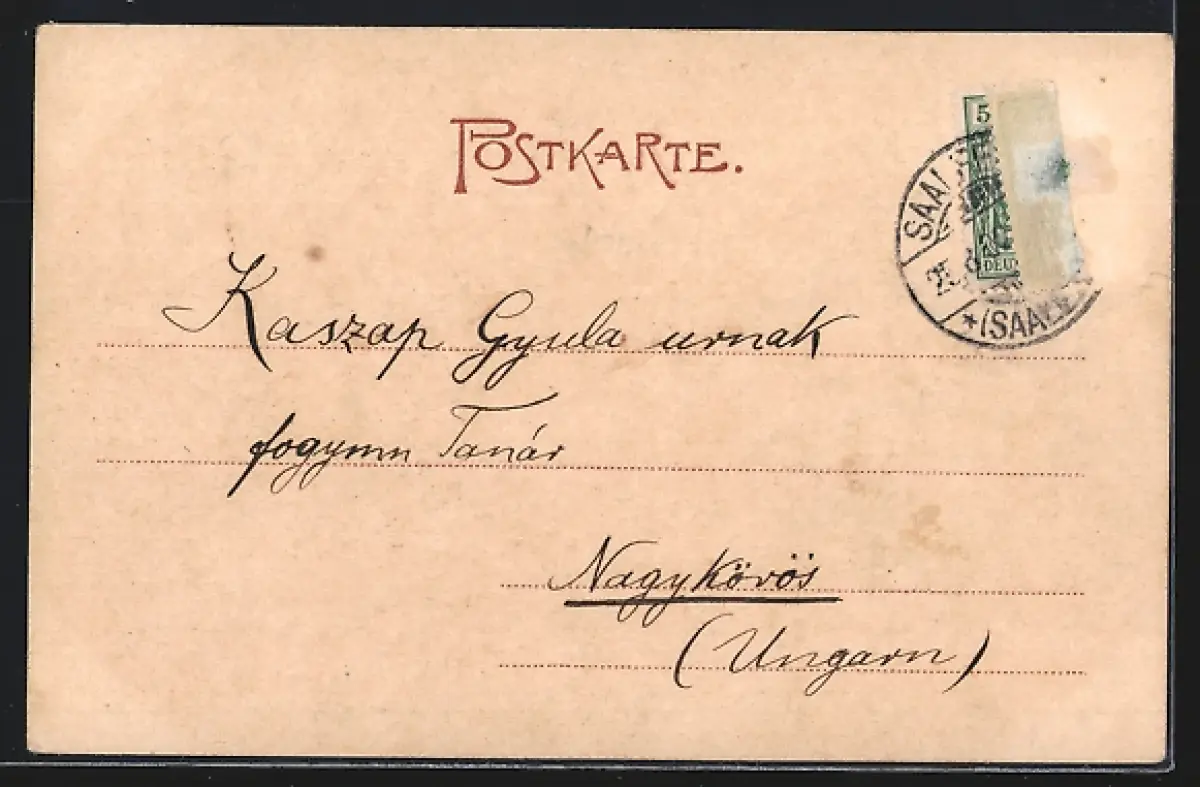 POSTKARTE.
5
SAAL
25
DEU
*(SAALE
Kaszap Gyula urnak
fogymn Tanár
Nagykőrös
(Ungarn)